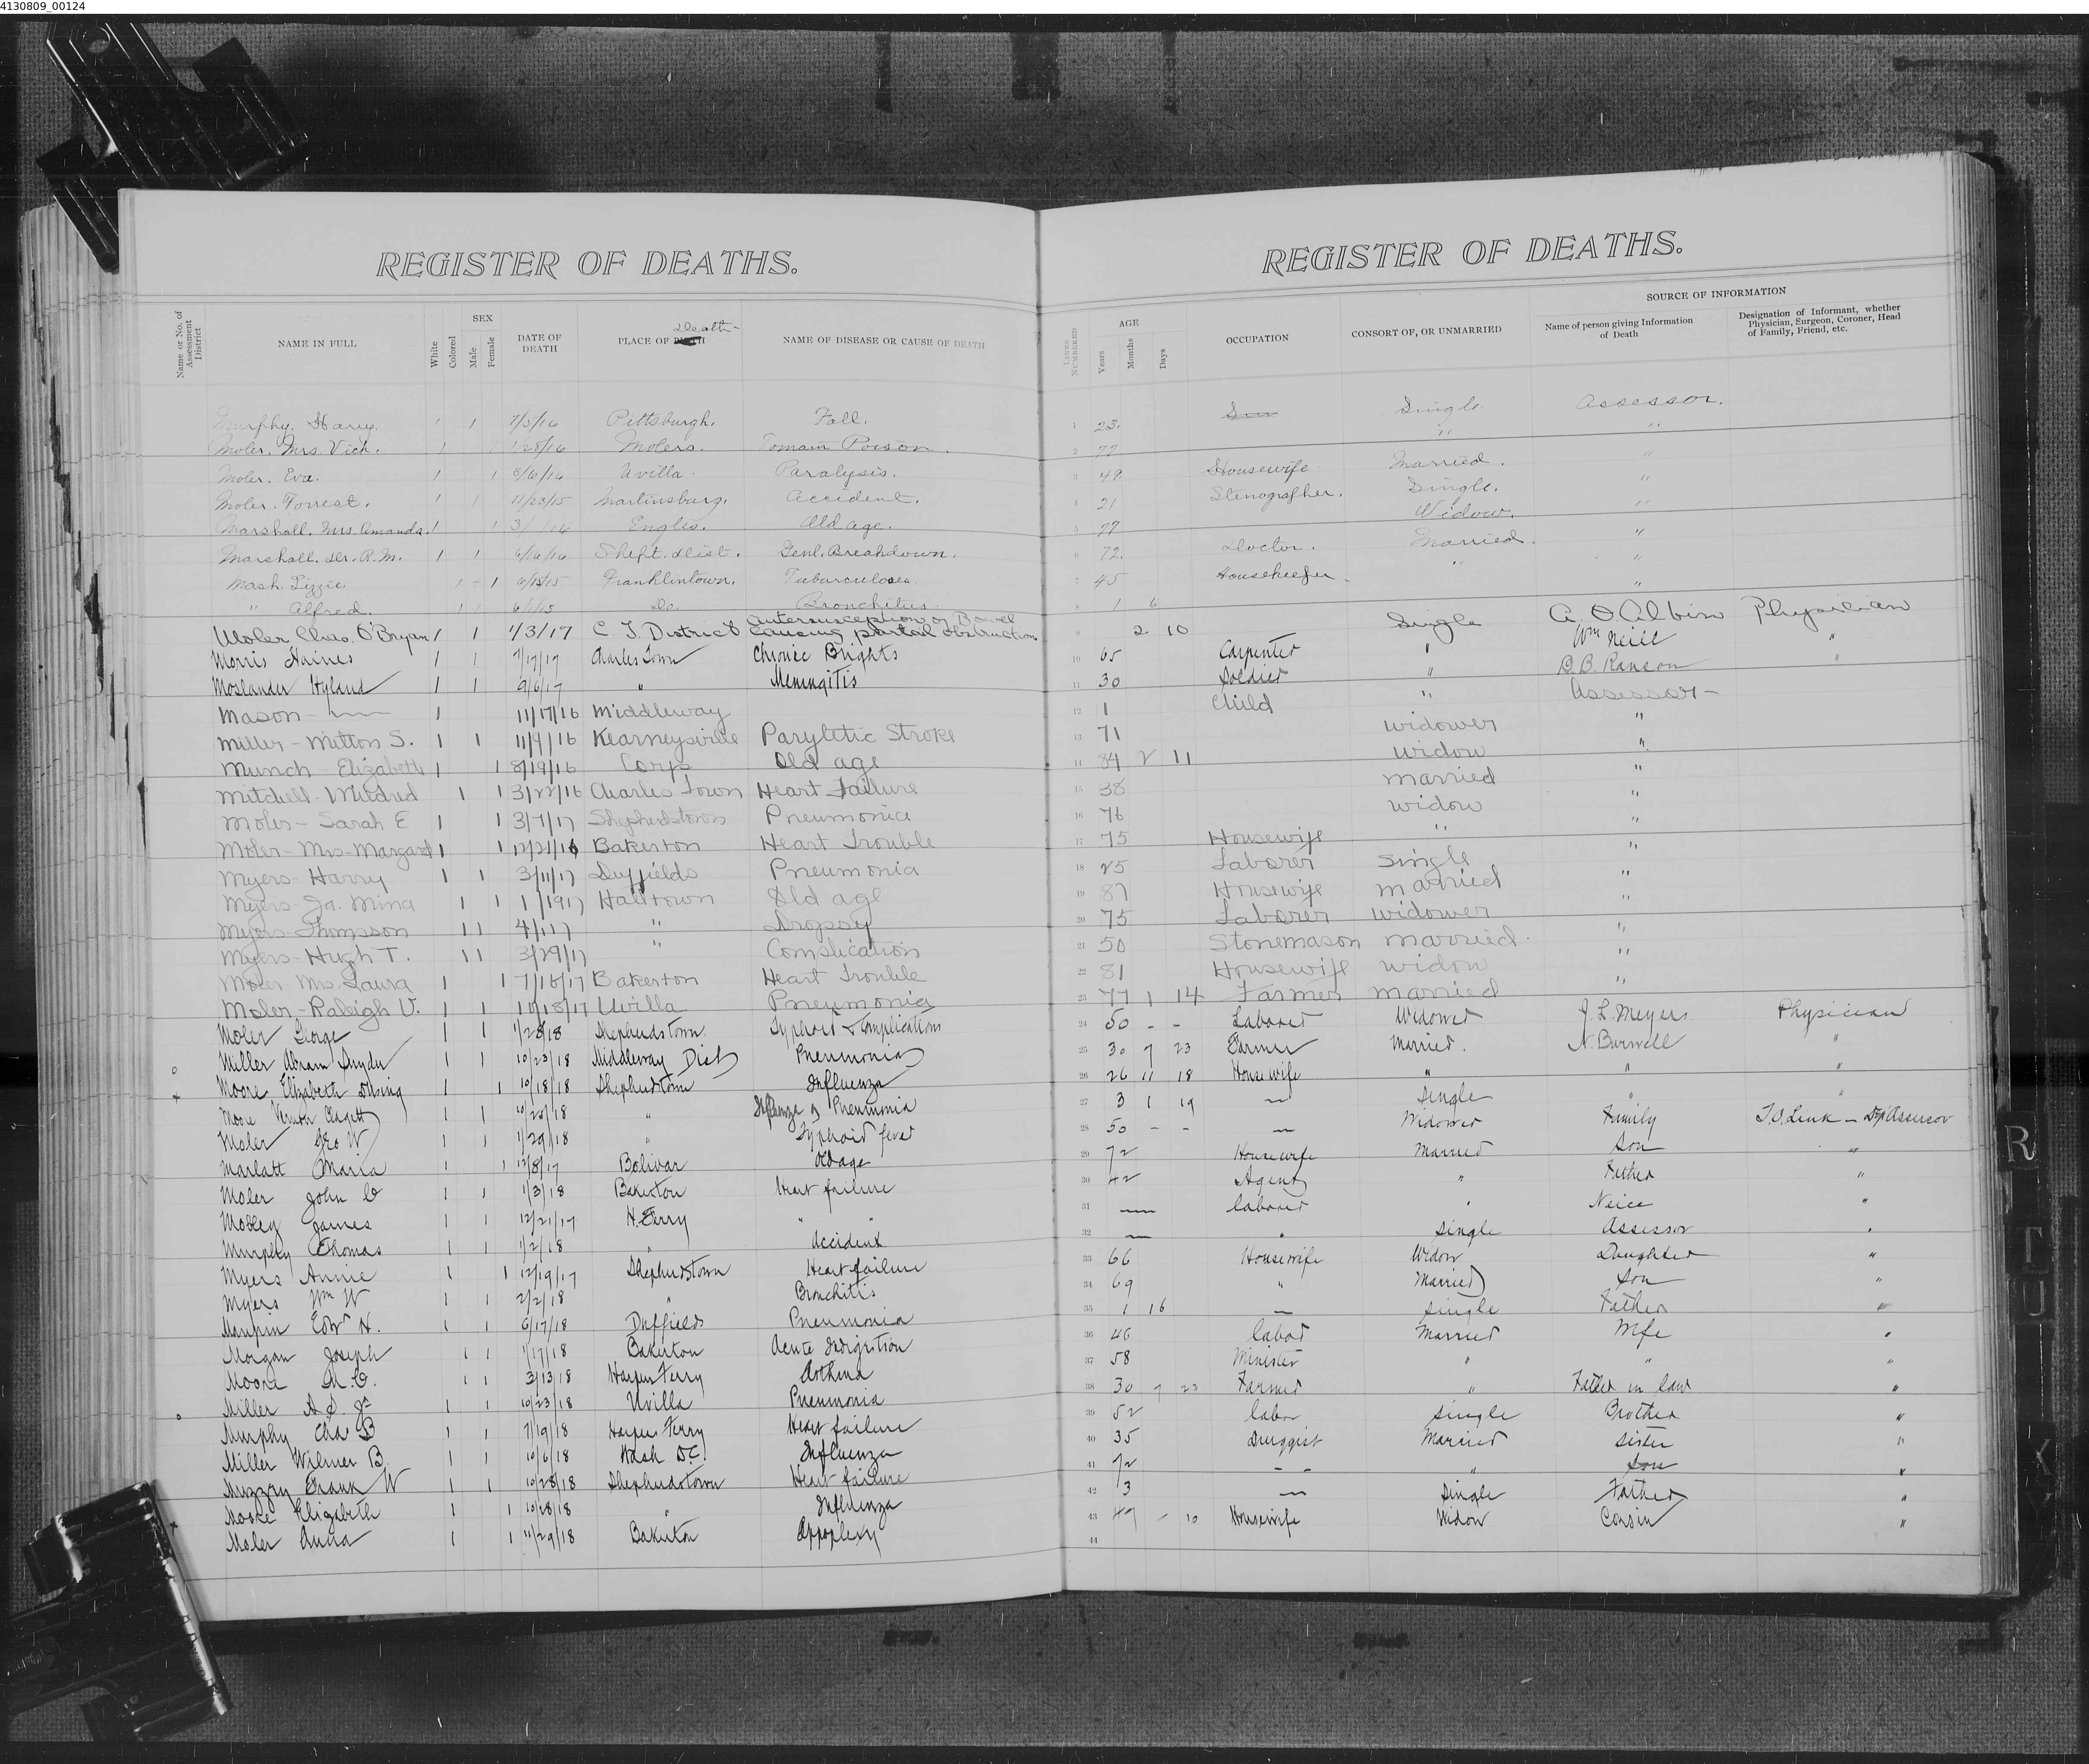 4130809_00124
REGISTER OF DEATHS.
Name or No. of Assessment District
NAME IN FULL
White
Colored
SEX
Male
Female
DATE OF DEATH
PLACE OF Death
NAME OF DISEASE OR CAUSE OF DEATH
Murphy. Harry. 1 1 7/5/16 Pittsburgh. Fall.
Moler. Mrs. Vick. 1 1 1/28/16 Molers. Tomain Poison.
Moler. Eva. 1 1 8/6/16 Uvilla. Paralysis.
Moler. Forrest. 1 1 11/23/15 Martinsburg. Accident.
Marshall. Mrs. Amanda. 1 1 Engles. Old age.
Marshall. Dr. R. M. 1 1 6/16/16 Shept. Dist. Genl. Breakdown.
Mash. Lizzie 1 - 1 6/15/15 Franklintown. Tuburculoses.
" Alfred. 1 1 6/1/15 Do. Bronchitus.
Moler Chas. O'Bryan 1 1 1/3/17 C T. District Intersusception of Bowel causing partial obstruction
Morris Haines 1 1 7/17/17 Charles Town Chronic Brights
Moslander Hyland 1 1 9/6/17 " Meningitis
Mason - 1 11/17/16 Middleway
Miller - Milton S. 1 1 11/9/16 Kearneysville Paryletic Stroke
Munch - Elizabeth 1 1 8/19/16 Corp Old age
Mitchell - Mildred 1 1 3/22/16 Charles Town Heart Failure
Moler - Sarah E 1 1 3/7/17 Shepherdstown Pneumonia
Moler - Mrs - Margaret 1 1 12/21/16 Bakerton Heart Trouble
Myers - Harry 1 1 3/11/17 Duffields Pneumonia
Myers - Mina 1 1 1/1917 Halltown Old age
Myers - Thompson 1 1 4/1/17 " Dropsy
Myers - Hugh T. 1 1 3/29/17 " Complication
Moler - Mrs. Laura 1 1 7/16/17 Bakerton Heart Trouble
Moler - Raleigh V. 1 1 10/18/17 Uvilla Pneumonia
Moler George 1 1 1/28/18 Shepherdstown Typhoid & Complications
Miller Abram Snyder 1 1 10/23/18 Middleway Dist Pneumonia
Moore Elizabeth 1 1 10/18/18 Shepherdstown Influenza
Moore Vernon Clagett 1 1 10/28/18 " Influenza & Pneumonia
Moler Geo W 1 1 1/29/18 " Typhoid fever
Marlatt Maria 1 1 12/8/17 Bolivar Old age
Moler John C 1 1 1/3/18 Bakerton Heart failure
James 1 1 12/21/17 H. Ferry " "
Murphy Thomas 1 1 1/2/18 " Accident
Myers Annie 1 1 12/19/17 Shepherdstown Heart failure
Myers Wm W 1 1 2/2/18 " Bronchitis
Maupin Edw H. 1 1 6/17/18 Duffields Pneumonia
Morgan Joseph 1 1 1/17/18 Bakerton Acute Indigestion
Moore 1 1 3/13/18 Harpers Ferry Asthma
Miller A S. Jr 1 1 10/23/18 Uvilla Pneumonia
Murphy Chas B 1 1 7/19/18 Harpers Ferry Heart failure
Miller Wilmer B. 1 1 10/6/18 Wash D.C. Influenza
Muzzy Frank W 1 1 10/28/18 Shepherdstown Heart failure
Moore Elizabeth 1 1 10/28/18 " Influenza
Moler Anna 1 1 11/29/18 Bakerton Appoplexy
REGISTER OF DEATHS.
LINES NUMBERED
AGE
Years
Months
Days
OCCUPATION
CONSORT OF, OR UNMARRIED
SOURCE OF INFORMATION
Name of person giving Information of Death
Designation of Informant, whether Physician, Surgeon, Coroner, Head of Family, Friend, etc.
1 23. Single. Assessor.
2 77 " "
3 49. Housewife Married. "
4 21 Stenographer. Single. "
5 77 Widow. "
6 72. Doctor. Married. "
7 45 Housekeeper. " "
8 1 6 "
9 2 10 Single A. O. Albin Physician
10 65 Carpenter " Wm Neill "
11 30 Soldier " B. B. Ranson "
12 1 Child " Assessor -
13 71 widower "
14 84 2 11 widow "
15 38 married "
16 76 widow "
17 75 Housewife " "
18 25 Laborer single "
19 87 Housewife married "
20 75 Laborer widower "
21 50 Stonemason married. "
22 81 Housewife widow "
23 77 1 14 Farmer married "
24 50 - - Laborer Widower J. L. Meyers Physician
25 30 7 23 Farmer Married. N. Burwell "
26 26 11 18 Housewife " " "
27 3 1 19 — Single " "
28 50 - - — Widower Family T. O. Link - Dep Assessor
29 72 Housewife Married Son "
30 42 Agent " Father "
31 — laborer " Neice "
32 — " Single Assessor "
33 66 Housewife Widow Daughter "
34 69 " Married Son "
35 1 16 — Single Father "
36 46 labor Married Wife "
37 58 Minister " " "
38 30 7 23 Farmer " Father in law "
39 52 labor single Brother "
40 35 Druggist Married Sister "
41 72 - - " Son "
42 3 — Single Father "
43 47 - 10 Housewife Widow Cousin "
44